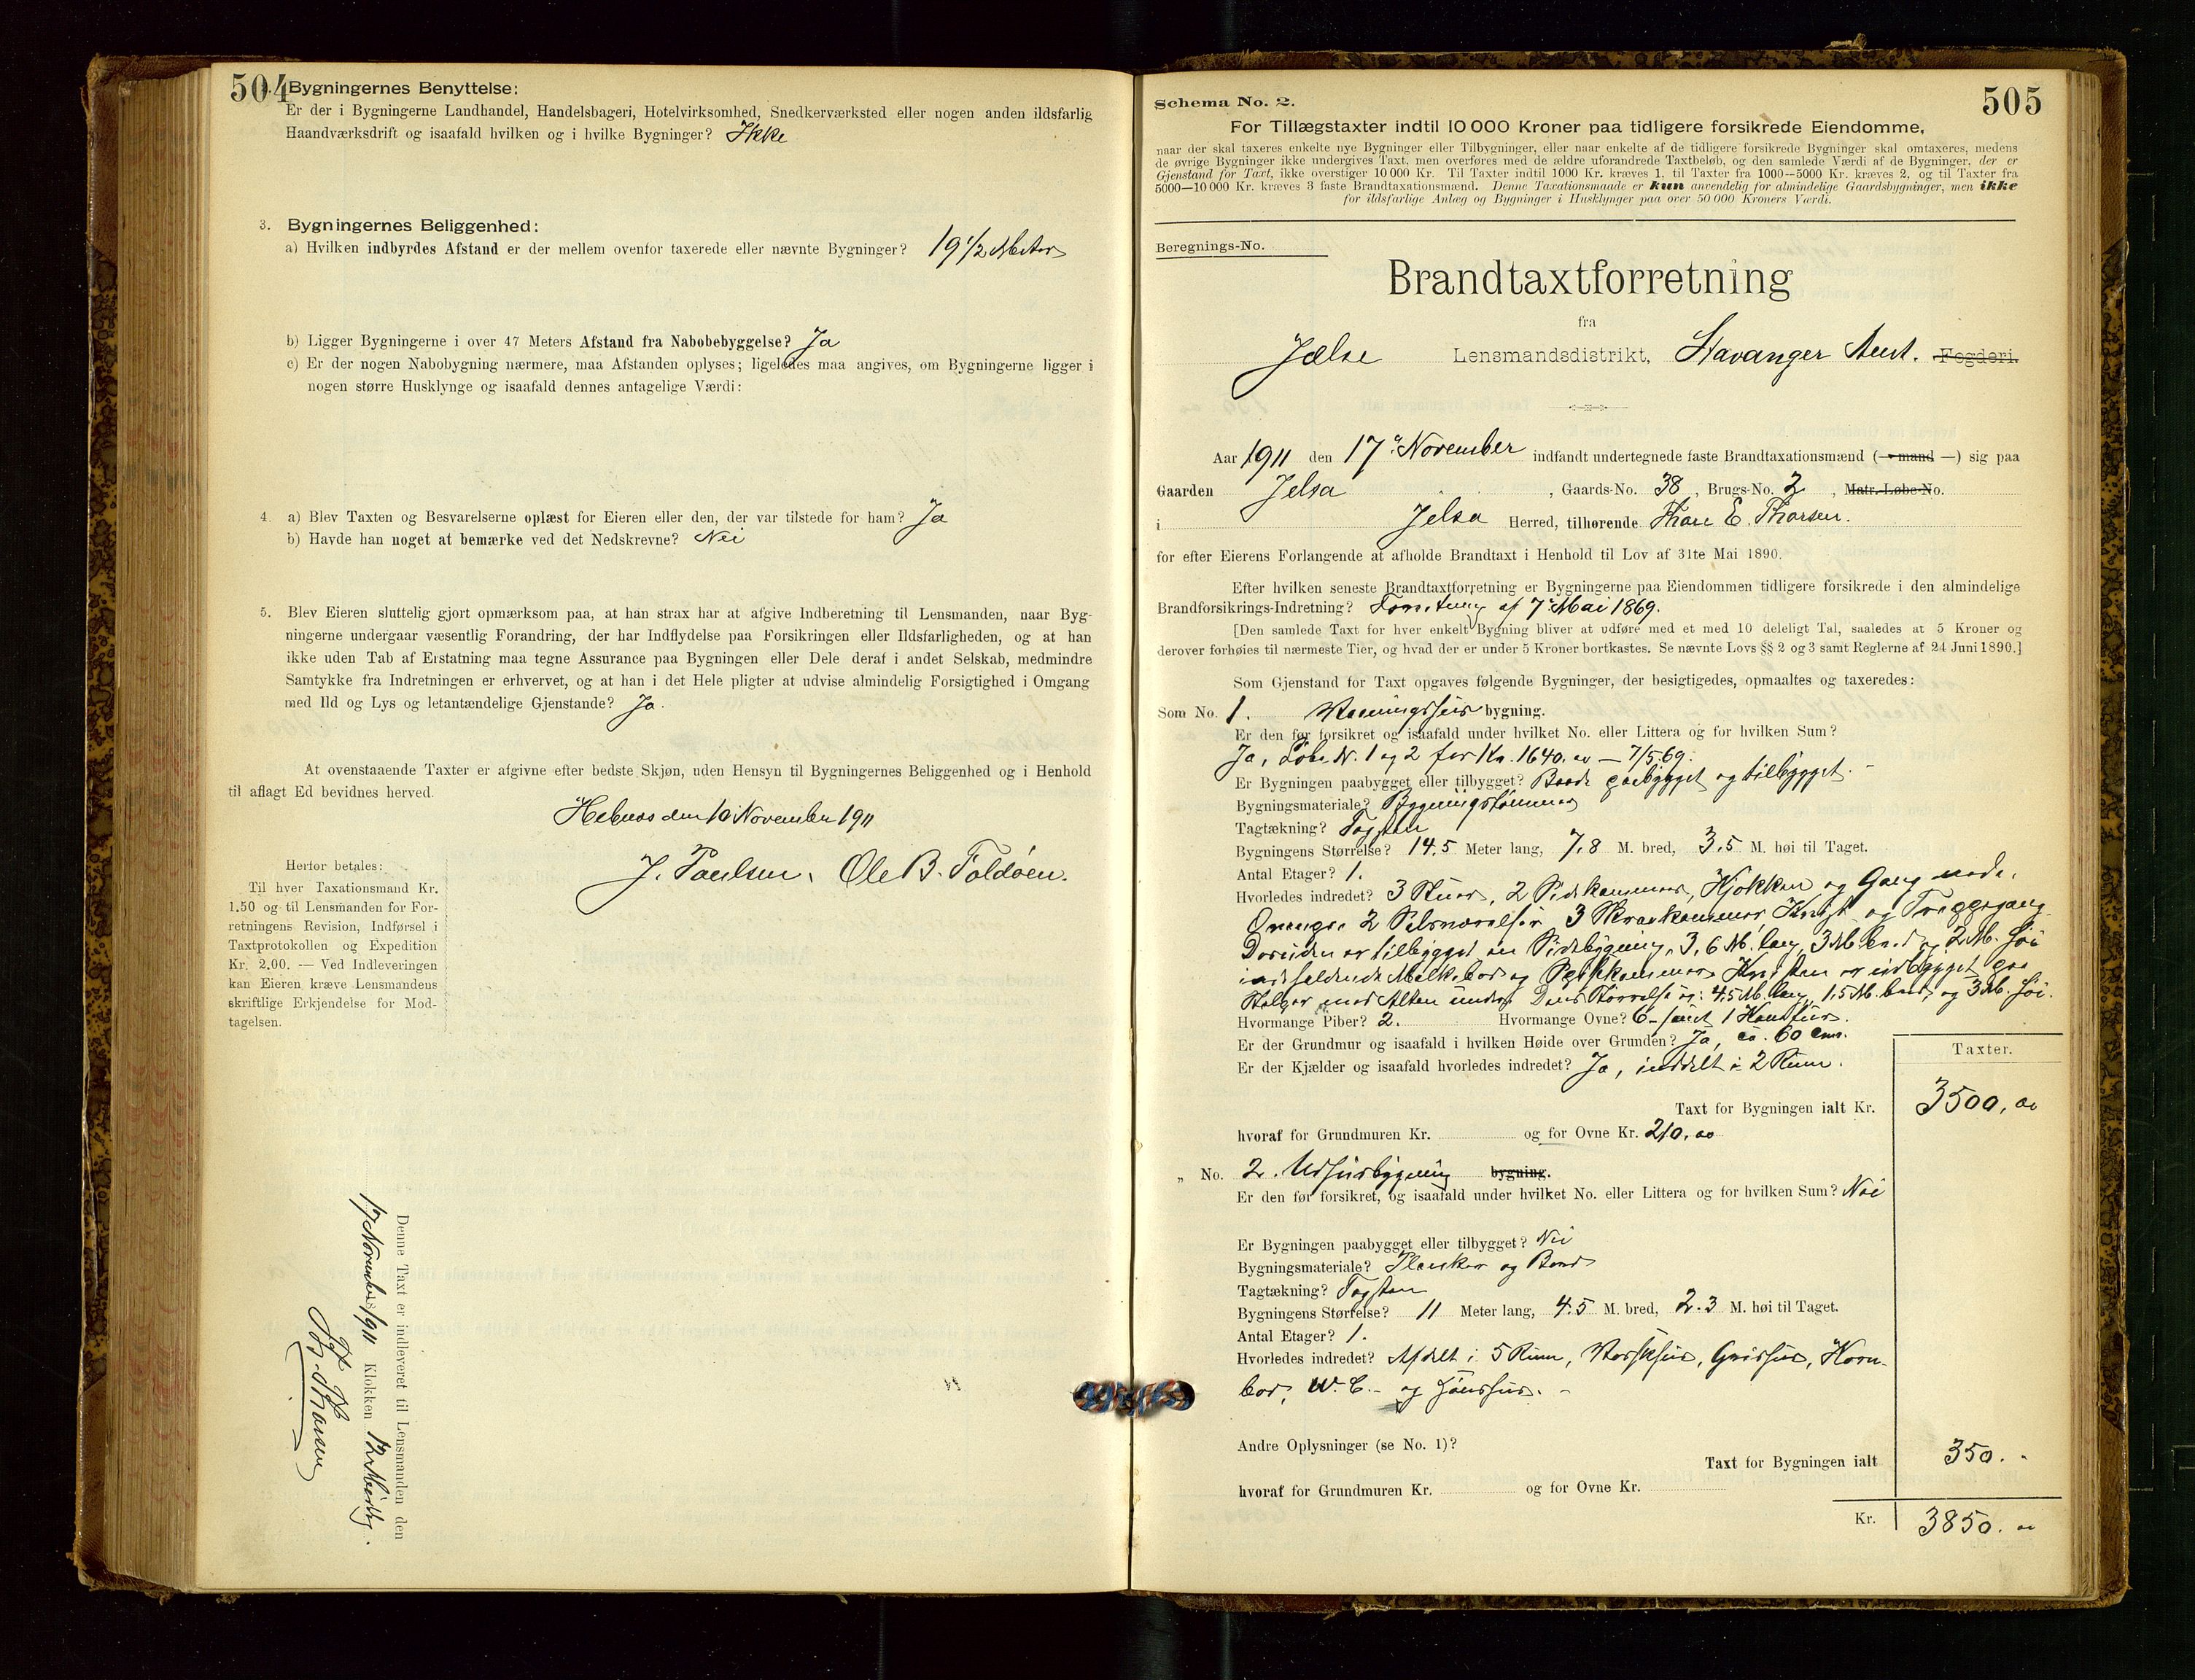 504
Bygningernes Benyttelse:
Er der i Bygningerne Landhandel, Handelsbageri, Hotelvirksomhed, Snedkerværksted eller nogen anden ildsfarlig
Haandværksdrift og isaafald hvilken og i hvilke Bygninger? Ikke
3. Bygningernes Beliggenhed:
a) Hvilken indbyrdes Afstand er der mellem ovenfor taxerede eller nævnte Bygninger? 19 1/2 Meter
b) Ligger Bygningerne i over 47 Meters Afstand fra Nabobebyggelse? Ja
c) Er der nogen Nabobygning nærmere, maa Afstanden oplyses; ligeledes maa angives, om Bygningerne ligger i
nogen større Husklynge og isaafald dennes antagelige Værdi:
4. a) Blev Taxten og Besvarelserne oplæst for Eieren eller den, der var tilstede for ham? Ja
b) Havde han noget at bemærke ved det Nedskrevne? Nei
5. Blev Eieren sluttelig gjort opmærksom paa, at han strax har at afgive Indberetning til Lensmanden, naar Byg-
ningerne undergaar væsentlig Forandring, der har Indflydelse paa Forsikringen eller Ildsfarligheden, og at han
ikke uden Tab af Erstatning maa tegne Assurance paa Bygningen eller Dele deraf i andet Selskab, medmindre
Samtykke fra Indretningen er erhvervet, og at han i det Hele pligter at udvise almindelig Forsigtighed i Omgang
med Ild og Lys og letantændelige Gjenstande? Ja.
At ovenstaaende Taxter er afgivne efter bedste Skjøn, uden Hensyn til Bygningernes Beliggenhed og i Henhold
til aflagt Ed bevidnes herved.
Hebnes den 10 November 1911
J. Paulsen. Ole B. Foldøen.
Herfor betales:
Til hver Taxationsmand Kr.
1.50 og til Lensmanden for For-
retningens Revision, Indførsel i
Taxtprotokollen og Expedition
Kr. 2.00. — Ved Indleveringen
kan Eieren kræve Lensmandens
skriftlige Erkjendelse for Mod-
tagelsen.
Denne Taxt er indleveret til Lensmanden den
17 November 1911 Klokken 12 Middag.
505
Schema No. 2.
For Tillægstaxter indtil 10 000 Kroner paa tidligere forsikrede Eiendomme,
naar der skal taxeres enkelte nye Bygninger eller Tilbygninger, eller naar enkelte af de tidligere forsikrede Bygninger skal omtaxeres, medens
de øvrige Bygninger ikke undergives Taxt, men overføres med de ældre uforandrede Taxtbeløb, og den samlede Værdi af de Bygninger, der er
Gjenstand for Taxt, ikke overstiger 10 000 Kr. Til Taxter indtil 1000 Kr. kræves 1, til Taxter fra 1000—5000 Kr. kræves 2, og til Taxter fra
5000—10 000 Kr. kræves 3 faste Brandtaxationsmænd. Denne Taxationsmaade er kun anvendelig for almindelige Gaardsbygninger, men ikke
for ildsfarlige Anlæg og Bygninger i Husklynger paa over 50 000 Kroners Værdi.
Beregnings-No.
Brandtaxtforretning
fra
Jælse Lensmandsdistrikt, Stavanger Amt. Fogderi.
Aar 1911 den 17de November indfandt undertegnede faste Brandtaxationsmænd (— mand —) sig paa
Gaarden Jelsa, Gaards-No. 38, Brugs-No. 2, Matr. Løbe-No.
i Jelsa Herred, tilhørende Thore E. Thorsen.
for efter Eierens Forlangende at afholde Brandtaxt i Henhold til Lov af 31te Mai 1890.
Efter hvilken seneste Brandtaxtforretning er Bygningerne paa Eiendommen tidligere forsikrede i den almindelige
Brandforsikrings-Indretning? Forretning af 7de Mai 1869.
[Den samlede Taxt for hver enkelt Bygning bliver at udføre med et med 10 deleligt Tal, saaledes at 5 Kroner og
derover forhøies til nærmeste Tier, og hvad der er under 5 Kroner bortkastes. Se nævnte Lovs §§ 2 og 3 samt Reglerne af 24 Juni 1890.]
Som Gjenstand for Taxt opgaves følgende Bygninger, der besigtigedes, opmaaltes og taxeredes:
Som No. 1. Vaaningshus bygning.
Er den før forsikret og isaafald under hvilket No. eller Littera og for hvilken Sum?
Ja, Løbe N. 1 og 2 for Kr. 1640.00 — 7/5 69.
Er Bygningen paabygget eller tilbygget? Baade paabygget og tilbygget.
Bygningsmateriale? Bygningstømmer
Tagtækning? Tagsten
Bygningens Størrelse? 14.5 Meter lang, 7.8 M. bred, 3.5 M. høi til Taget.
Antal Etager? 1.
Hvorledes indredet? 3 Stuer, 2 Sidekammer, Kjøkken og Gang nede.
Ovenpaa 2 Salsværelser 3 Skraakammer, Kvist og Trappegang
Desuden er tilbygget en Sidebygning, 3,6 M. lang, 3 M. bred og 2 M. høi
indholdende Melkebod og Kvisten er udbygget paa
Stolper med Alten under. Dens Størrelse er: 4,5 M. lang, 1,5 M. bred, og 3 M. høi.
Hvormange Piber? 2. Hvormange Ovne? 6 — samt 1 Komfur.
Er der Grundmur og isaafald i hvilken Høide over Grunden? Ja, ca. 60 Cm.
Er der Kjælder og isaafald hvorledes indredet? Ja, inddelt i 2 Rum.
Taxter.
Taxt for Bygningen ialt Kr. 3500,00
hvoraf for Grundmuren Kr. og for Ovne Kr. 210,00
„ No. 2. Udhusbygning bygning.
Er den før forsikret, og isaafald under hvilket No. eller Littera og for hvilken Sum? Nei
Er Bygningen paabygget eller tilbygget? Nei
Bygningsmateriale? Planker og Bord
Tagtækning? Tagsten
Bygningens Størrelse? 11 Meter lang, 4.5 M. bred, 2.3 M. høi til Taget.
Antal Etager? 1.
Hvorledes indredet? Afdelt i 5 Rum, Vaskhus, Grishus, Korn-
bod, W.C. og Hønshus.
Andre Oplysninger (se No. 1)?
Taxt for Bygningen ialt 350. -
hvoraf for Grundmuren Kr. og for Ovne Kr.
Kr. 3850. 00